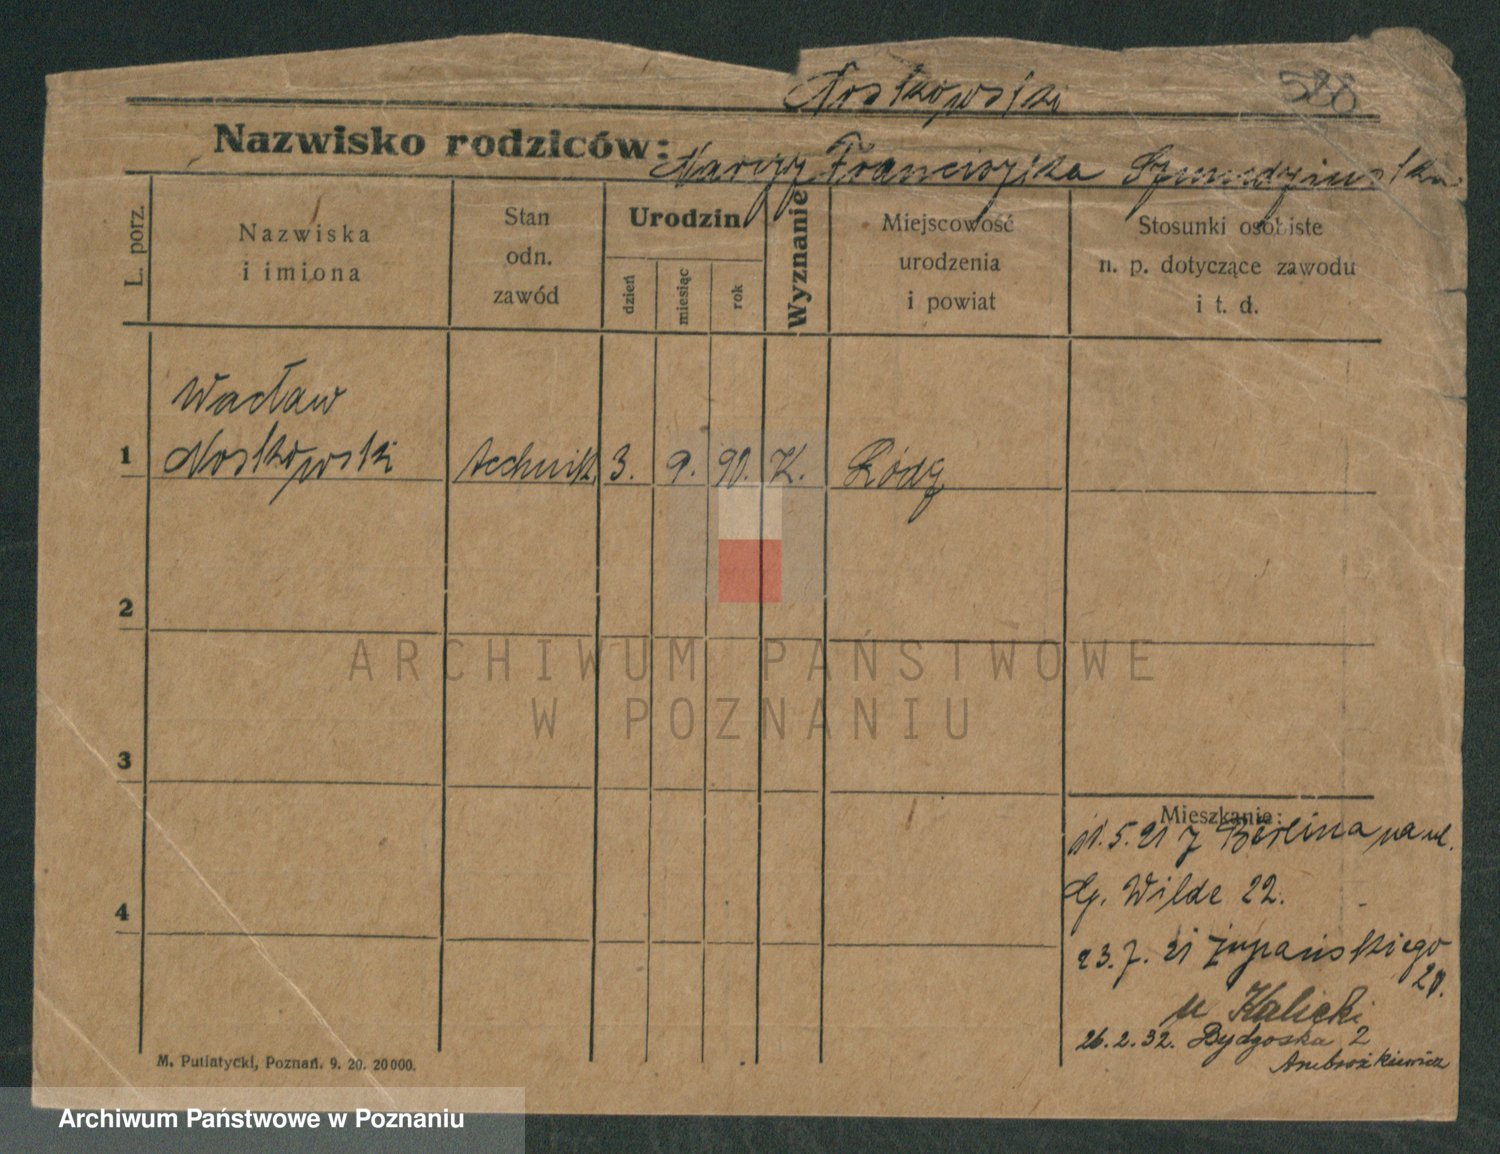 Noskowski 588
Nazwisko rodziców: Franciszka
L. porz.
Nazwiska
i imiona
Stan
odn.
zawód
Urodzin
dzień
miesiąc
rok
Wyznanie
Miejscowość
urodzenia
i powiat
Stosunki osobiste
n. p. dotyczące zawodu
i t. d.
Wacław
1 Noskowski technik 3. 9. 90. K. Łódź
2
ARCHIWUM PAŃSTWOWE
W POZNANIU
3
Mieszkanie:
5. 21 z Berlina na ul.
Wilde 22.
4
23. 7. 21 Żupańskiego
20.
u Kalicki
26. 2. 32. Bydgoska 2
Ambrożkiewicz
M. Putiatycki, Poznań. 9. 20. 20000.
Archiwum Państwowe w Poznaniu